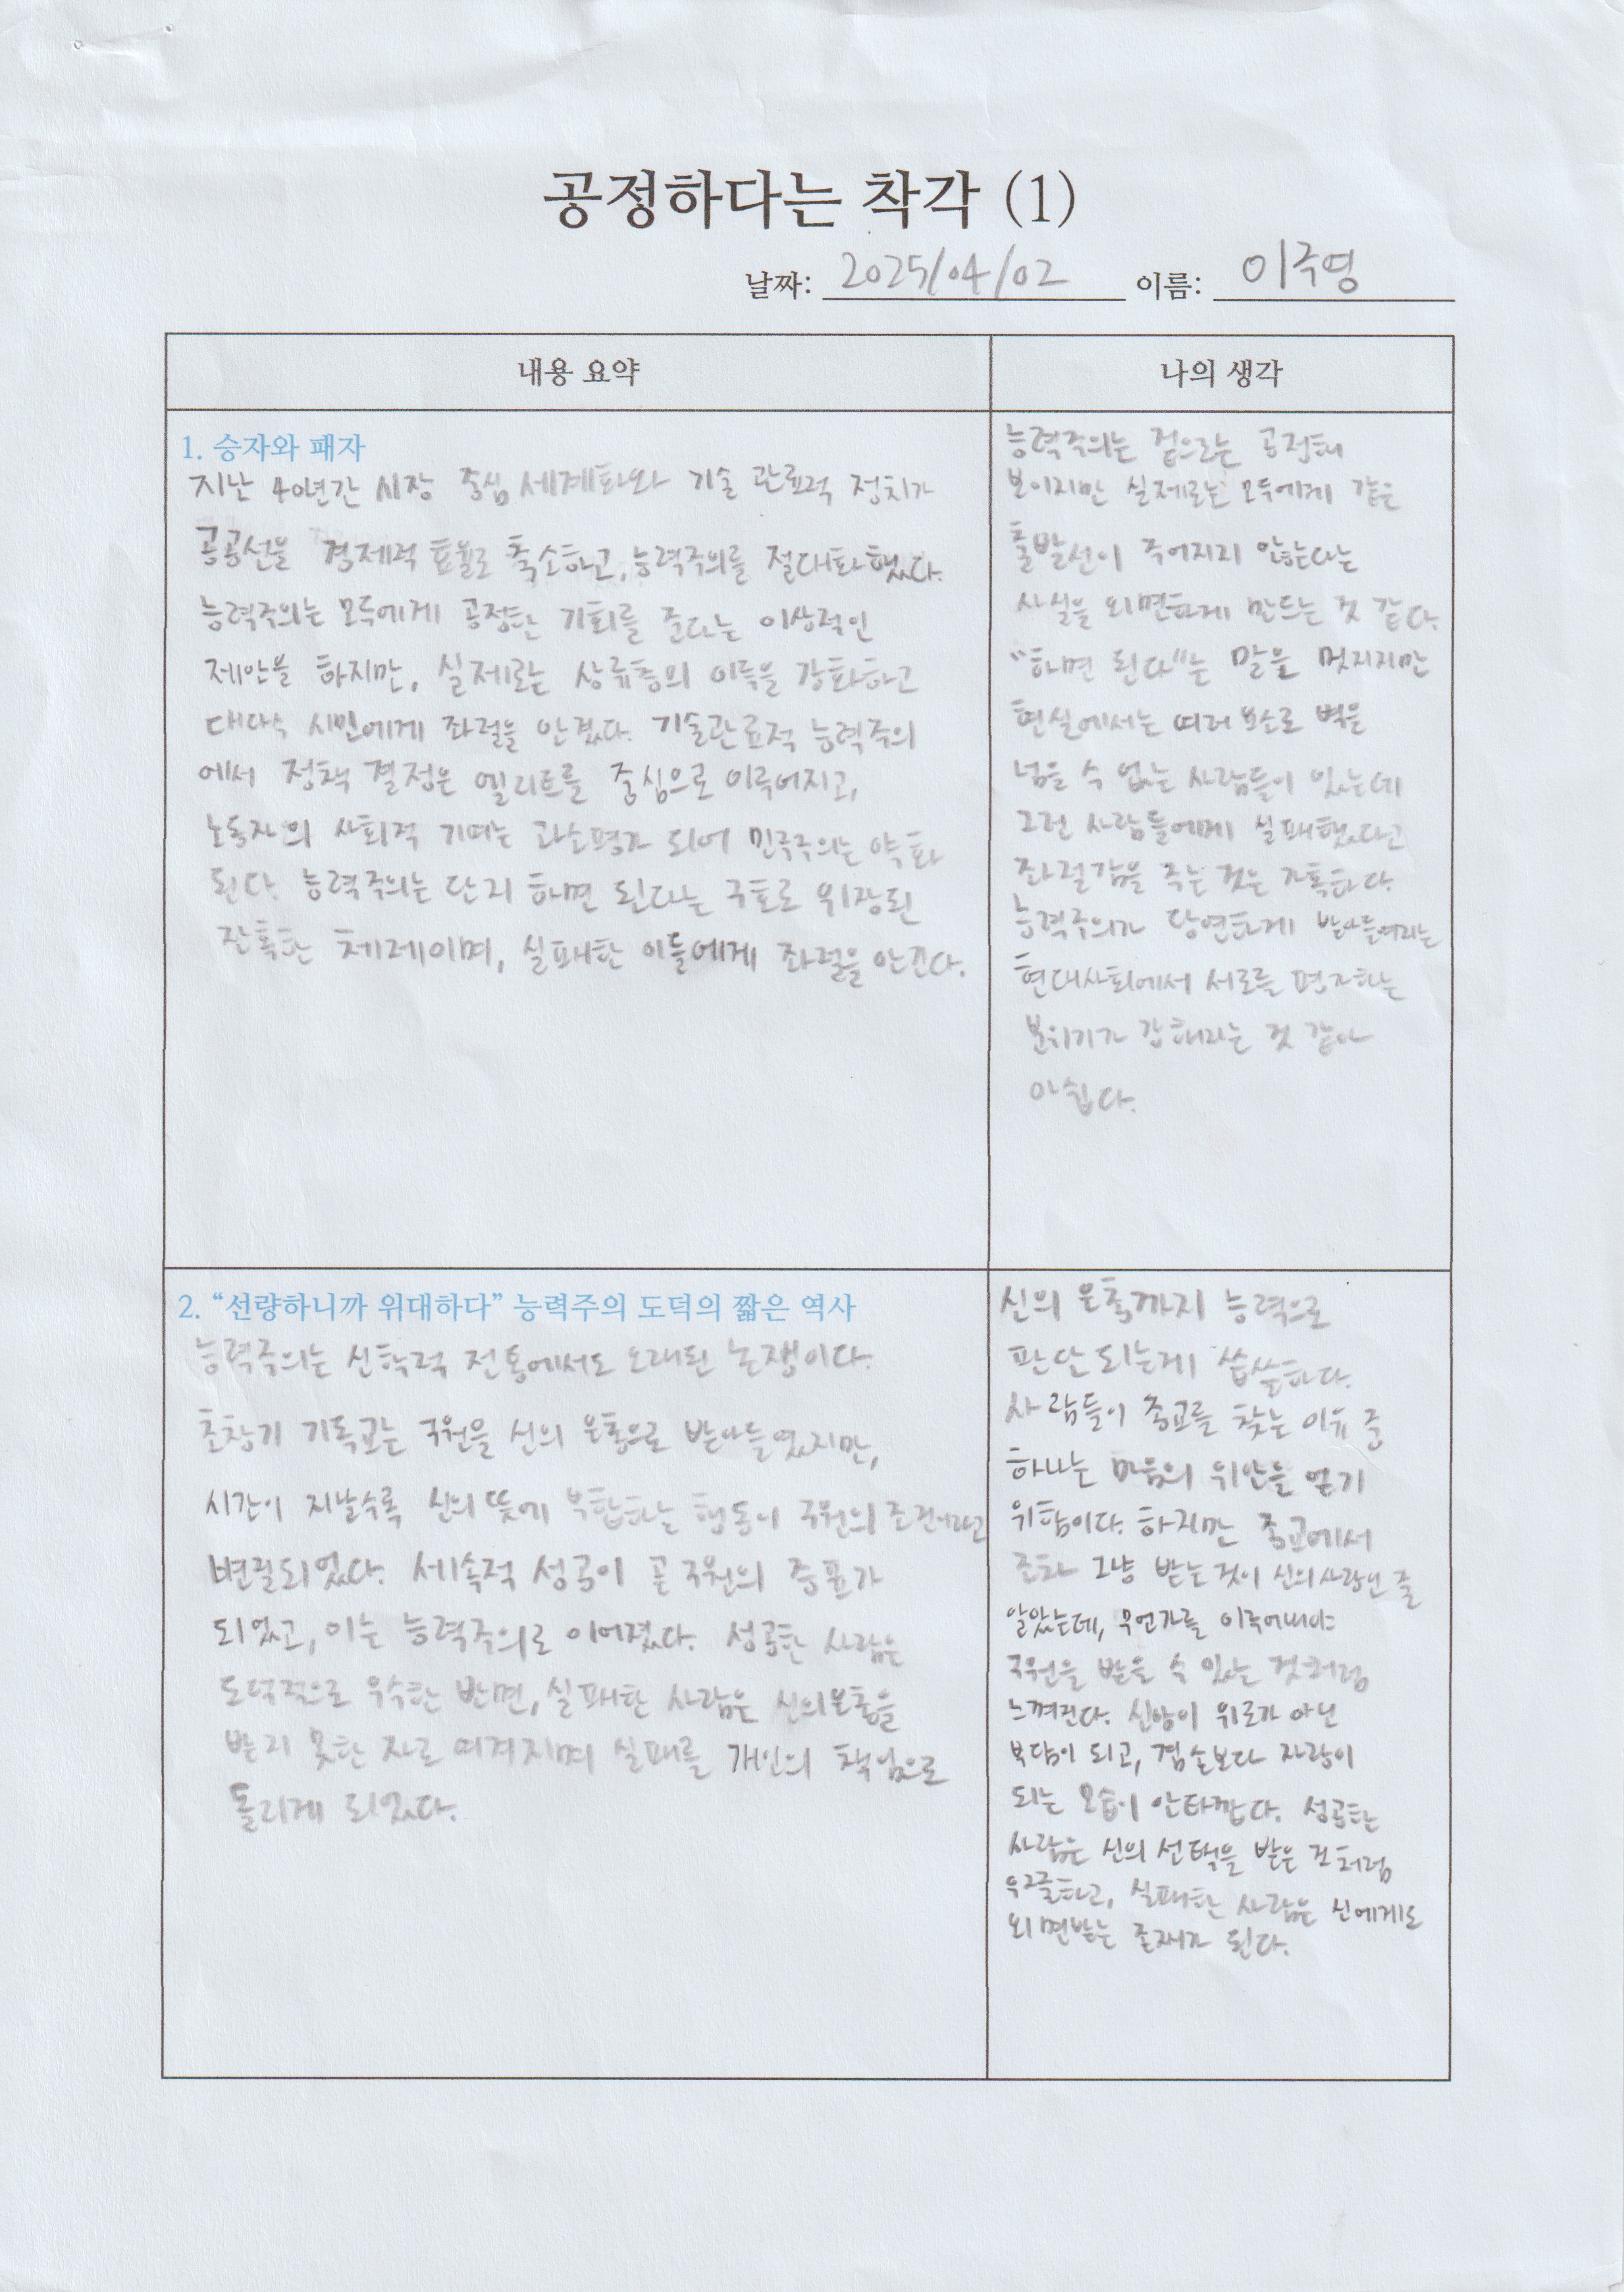 공정하다는 착각 (1)
날짜: 2025/04/02 이름: 이주영
내용 요약
나의 생각
1. 승자와 패자
지난 40년간 시장 중심 세계화와 기술 관료적 정치가
공공선을 경제적 효율로 축소하고, 능력주의를 절대화했다.
능력주의는 모두에게 공정한 기회를 준다는 이상적인
제안을 하지만, 실제로는 상류층의 이득을 강화하고
대다수 시민에게 좌절을 안겼다. 기술관료적 능력주의
에서 정책 결정은 엘리트를 중심으로 이루어지고,
노동자의 사회적 기여는 과소평가 되어 민주주의는 약화
된다. 능력주의는 단지 하면 된다는 구호로 위장된
잔혹한 체제이며, 실패한 이들에게 좌절을 안긴다.
능력주의는 겉으로는 공정해
보이지만 실제로는 모두에게 같은
출발선이 주어지지 않는다는
사실을 외면하게 만드는 것 같다.
"하면 된다"는 말은 멋지지만
현실에서는 여러 요소로 벽을
넘을 수 없는 사람들이 있는데
그런 사람들에게 실패했다고
좌절감을 주는 것은 가혹하다.
능력주의가 당연하게 받아들여지는
현대사회에서 서로를 평가하는
분위기가 강해지는 것 같아
아쉽다.
2. “선량하니까 위대하다” 능력주의 도덕의 짧은 역사
능력주의는 신학적 전통에서도 오래된 논쟁이다.
초창기 기독교는 구원을 신의 은총으로 받아들였지만,
시간이 지날수록 신의 뜻에 부합하는 행동이 구원의 조건이라고
변질되었다. 세속적 성공이 곧 구원의 증표가
되었고, 이는 능력주의로 이어졌다. 성공한 사람은
도덕적으로 우수한 반면, 실패한 사람은 신의 은총을
받지 못한 자로 여겨지며 실패를 개인의 책임으로
돌리게 되었다.
신의 은총까지 능력으로
판단되는게 씁쓸하다.
사람들이 종교를 찾는 이유 중
하나는 마음의 위안을 얻기
위함이다. 하지만 종교에서
그냥 받는 것이 신의 사랑인 줄
알았는데, 무언가를 이루어내야
구원을 받을 수 있는 것처럼
느껴진다. 신앙이 위로가 아닌
부담이 되고, 겸손보다 자랑이
되는 모습이 안타깝다. 성공하는
사람은 신의 선택을 받은 것처럼
우쭐하고, 실패한 사람은 신에게도
외면받는 존재가 된다.